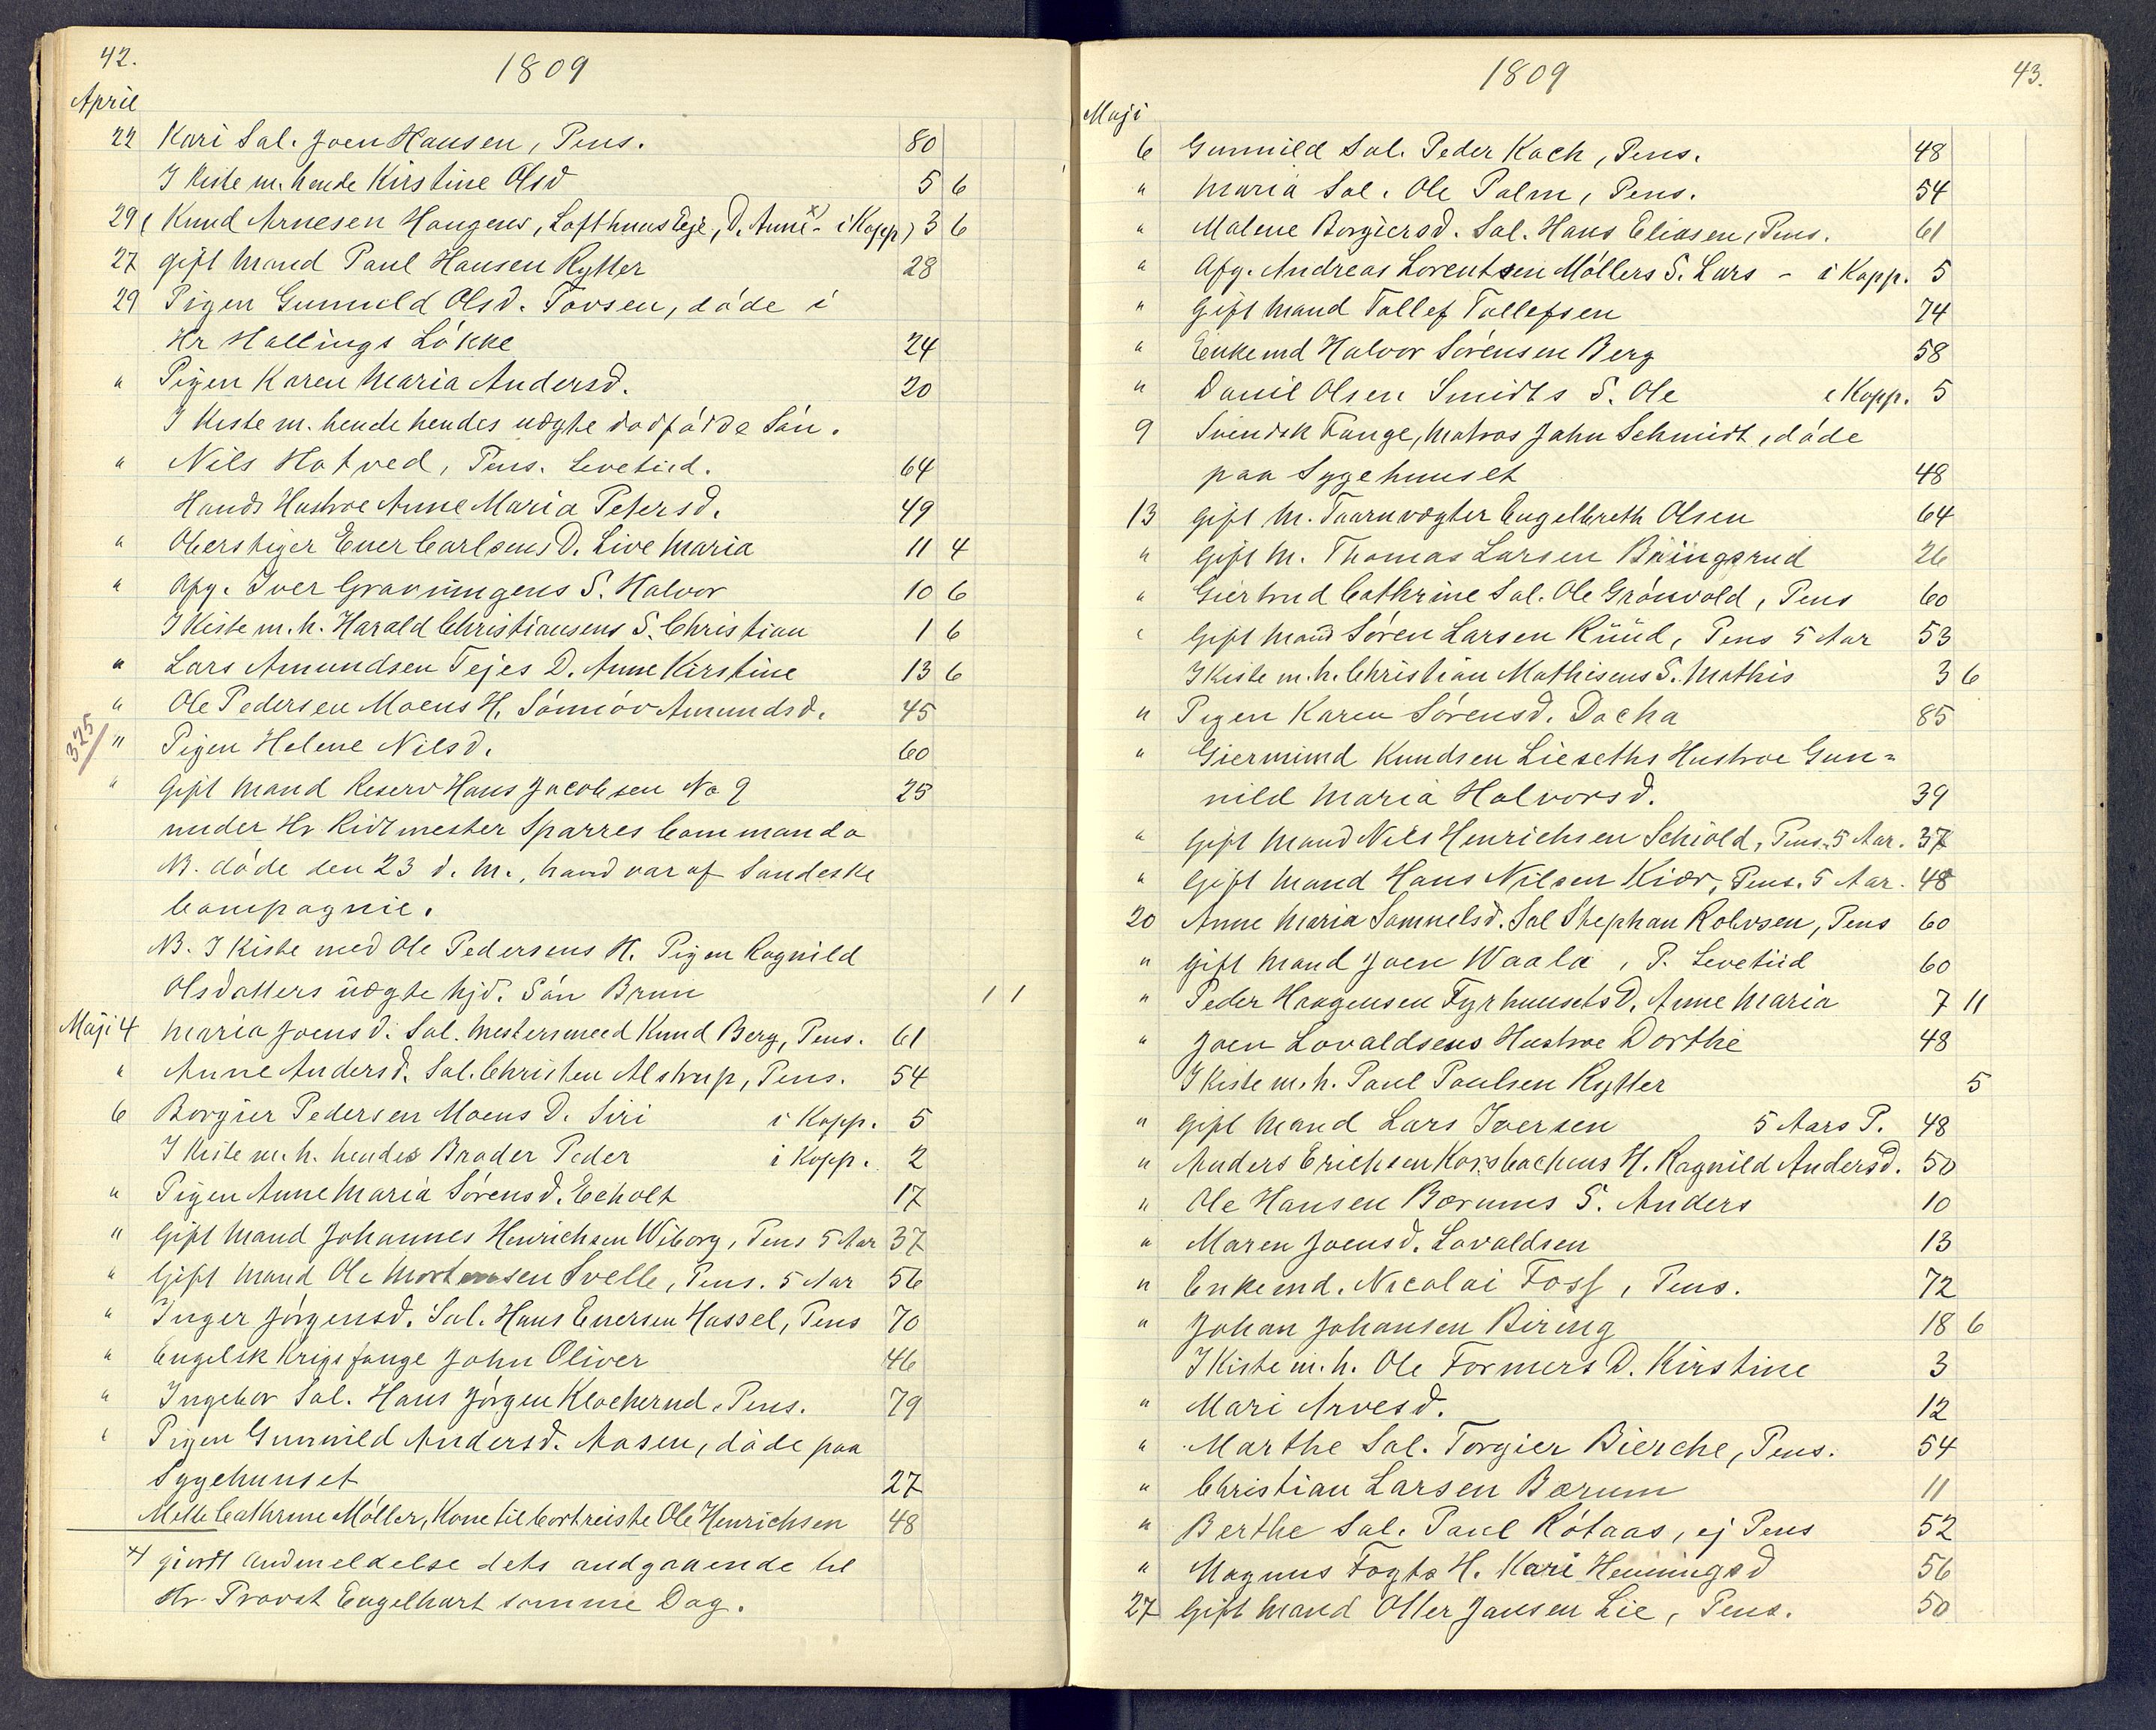 42.
1809
April
22 Kari Sal. Joen Hansen, Pens. 80
I Kiste m. hende Kirstine Olsd 5 6
29 ( Knud Arnesen Haugens, Lofthuus Eje, D. Anne x) - i Kopp) 3 6
27 gift Mand Paul Hansen Rytter 28
29 Pigen Gunnild Olsd. Torsen, døde i
Hr Hallings Løkke 24
" Pigen Karen Maria Andersd. 20
I Kiste m. hende hendes uægte dødfødde Søn.
" Nils Hotved, Pens. Levetiid. 64
Hands Hustroe Anne Maria Petersd. 49
" Oberstiger Ener Carlsens D. Live Maria 11 4
" Afg. Iver Gravningens S. Halvor 10 6
I Kiste m. h. Harald Christiansens S. Christian 1 6
" Lars Amundsen Tejes D. Anne Kirstine 13 6
" Ole Pedersen Moens H. Sømøv Amundsd. 45
325/ " Pigen Helene Nilsd. 60
" Gift Mand Reserv Hans Jacobsen No 9 25
under Hr Ridtmester Sparres Commando
NB. døde den 23 d. M., hand var af Sandeske
Compagnie.
NB. I Kiste med Ole Pedersens H. Pigen Ragnild
Olsdatters uægte hjd. Søn Brun 1 1
Maji 4 Maria Joensd. Sal. Mestersmed Knud Berg, Pens. 61
" Anne Andersd. Sal. Christen Alstrup, Pens. 54
6 Borgier Pedersen Moens D. Siri i Kopp. 5
I Kiste m. h. hendes Broder Peder i Kopp. 2
" Pigen Anne Maria Sørensd. Echolt 17
" Gift Mand Johannes Henrichsen Wiborg, Pens 5 Aar 37
" Gift Mand Ole Mortensen Svelle, Pens. 5 Aar 56
" Inger Jørgensd. Sal. Hans Enersen Hassel, Pens 70
" Engelsk Krigsfange John Oliver 46
" Ingebor Sal. Hans Jørgen Klocherud, Pens. 79
" Pigen Gunnild Andersd. Aasen, døde paa
Sygehuuset 27
Mette Cathrine Møller, Kone til bortreiste Ole Henrichsen 48
x) giordt Andmeldelse dets andgaaende til
Hr. Provst Engelhart samme Dag.
1809
43.
Maji
6 Gunnild Sal. Peder Koch, Pens. 48
" Maria Sal. Ole Palm, Pens. 54
" Malene Borgiersd. Sal. Hans Eliasen, Pens. 61
" Afg. Andreas Lorentsen Møllers S. Lars - i Kopp. 5
" Gift Mand Tollef Tollefsen 74
" Enkemd Halvor Sørensen Berg 58
" Daniel Olsen Smidts S. Ole i Kopp. 5
9 Svendsk Fange, Matros Jahn Schmidt, døde
paa Sygehuuset 48
13 Gift M. Taarnvægter Engelbreth Olsen 64
" Gift M. Thomas Larsen Büingsrud 26
" Giertrud Cathrine Sal. Ole Grønvold, Pens 60
" Gift Mand Søren Larsen Rüüd, Pens 5 Aar 53
I Kiste m. h. Christian Mathisens S. Mathis 3 6
" Pigen Karen Sørensd. Docka 85
" Giermund Knudsen Lieseths Hustroe Gun=
nild Maria Halvorsd. 39
" Gift Mand Nils Henrichsen Schiold, Pens. 5 Aar. 37
" Gift Mand Hans Nilsen Kiær, Pens. 5 Aar. 48
20 Anne Maria Samuelsd. Sal Stephan Rolvsen, Pens 60
" Gift Mand Joen Waala, P. Levetiid 60
" Peder Haagensen Fyrhuusets D. Anne Maria 7 11
" Joen Lovaldsens Hustroe Dorthe 48
I Kiste m. h. Paul Paulsen Rytter 5
" Gift Mand Lars Iversen 5 Aars P. 48
" Anders Erichsen Korsbachens H. Ragnild Andersd. 50
" Ole Hansen Bærums S. Anders 10
" Maren Joensd. Lovaldsen 13
" Enkemd. Nicolai Foss, Pens. 72
" Johan Johansen Biring 18 6
I Kiste m. h. Ole Formers D. Kirstine 3
" Mari Arvesd. 12
" Marthe Sal. Torgier Bierche, Pens. 54
" Christian Larsen Bærum 11
" Berthe Sal. Paul Røtaas, ej Pens 52
" Magnus Fogts H. Kari Henningsd 56
27 Gift Mand Otter Jansen Lie, Pens. 50